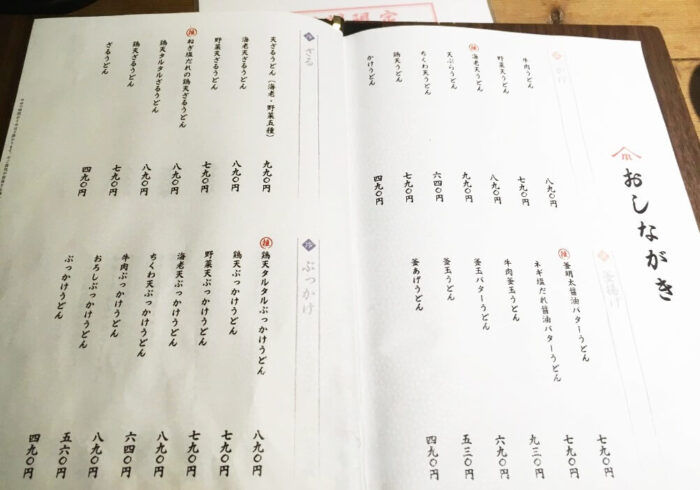 おしながき
かけ
牛肉うどん 八九〇円
野菜天うどん 七九〇円
推 海老天うどん 八九〇円
天ぷらうどん 九九〇円
ちくわ天うどん 六四〇円
鶏天うどん 七九〇円
かけうどん 四九〇円
釜揚げ
推 釜明太醤油バターうどん 七九〇円
ネギ塩だれ醤油バターうどん 七九〇円
牛肉釜玉うどん 九三〇円
釜玉バターうどん 六九〇円
釜玉うどん 五三〇円
釜あげうどん 四九〇円
ざる
天ざるうどん（海老・野菜五種） 九九〇円
海老天ざるうどん 八九〇円
野菜天ざるうどん 七九〇円
推 ねぎ塩だれの鶏天ざるうどん 八九〇円
鶏天タルタルざるうどん 八九〇円
鶏天ざるうどん 七九〇円
ざるうどん 四九〇円
ぶっかけ
推 鶏天タルタルぶっかけうどん 八九〇円
鶏天ぶっかけうどん 七九〇円
野菜天ぶっかけうどん 七九〇円
海老天ぶっかけうどん 八九〇円
ちくわ天ぶっかけうどん 六四〇円
牛肉ぶっかけうどん 八九〇円
おろしぶっかけうどん 五六〇円
ぶっかけうどん 四九〇円